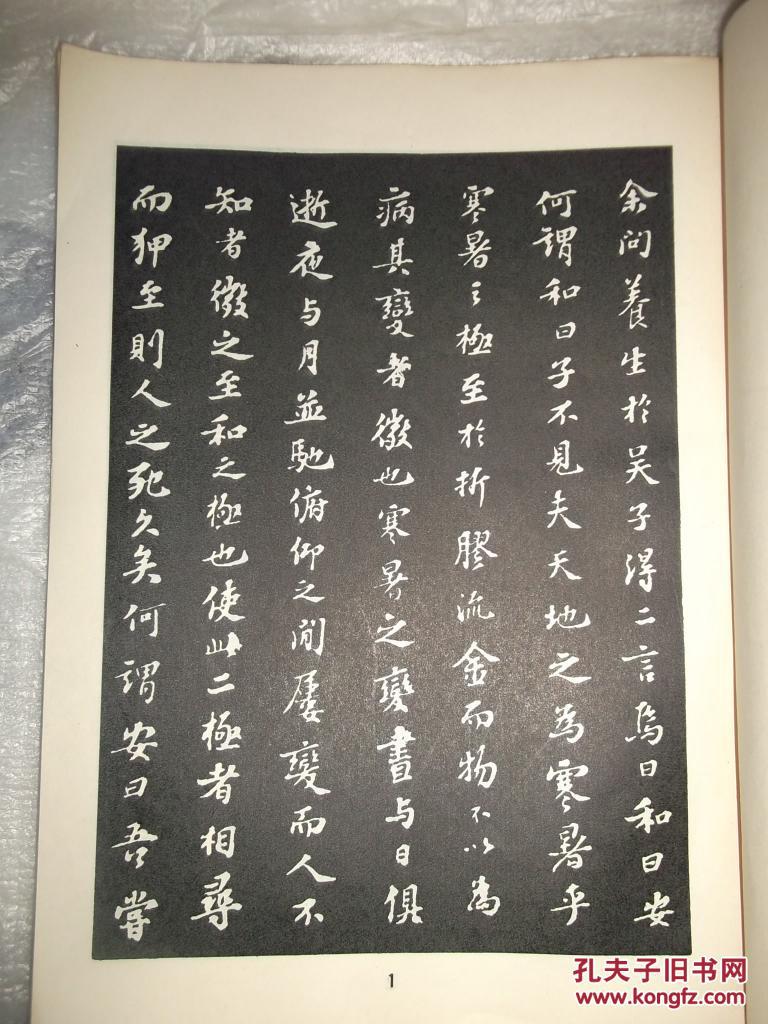 余问養生於吴子得二言焉曰和曰安
何謂和曰子不見夫天地之為寒暑乎
寒暑之極至於折膠流金而物不以為
病其變者微也寒暑之變晝与日俱
逝夜与月並馳俯仰之間屢變而人不
知者微之至和之極也使此二極者相尋
而狎至則人之死久矣何謂安曰吾嘗
1
孔夫子旧书网
www.kongfz.com